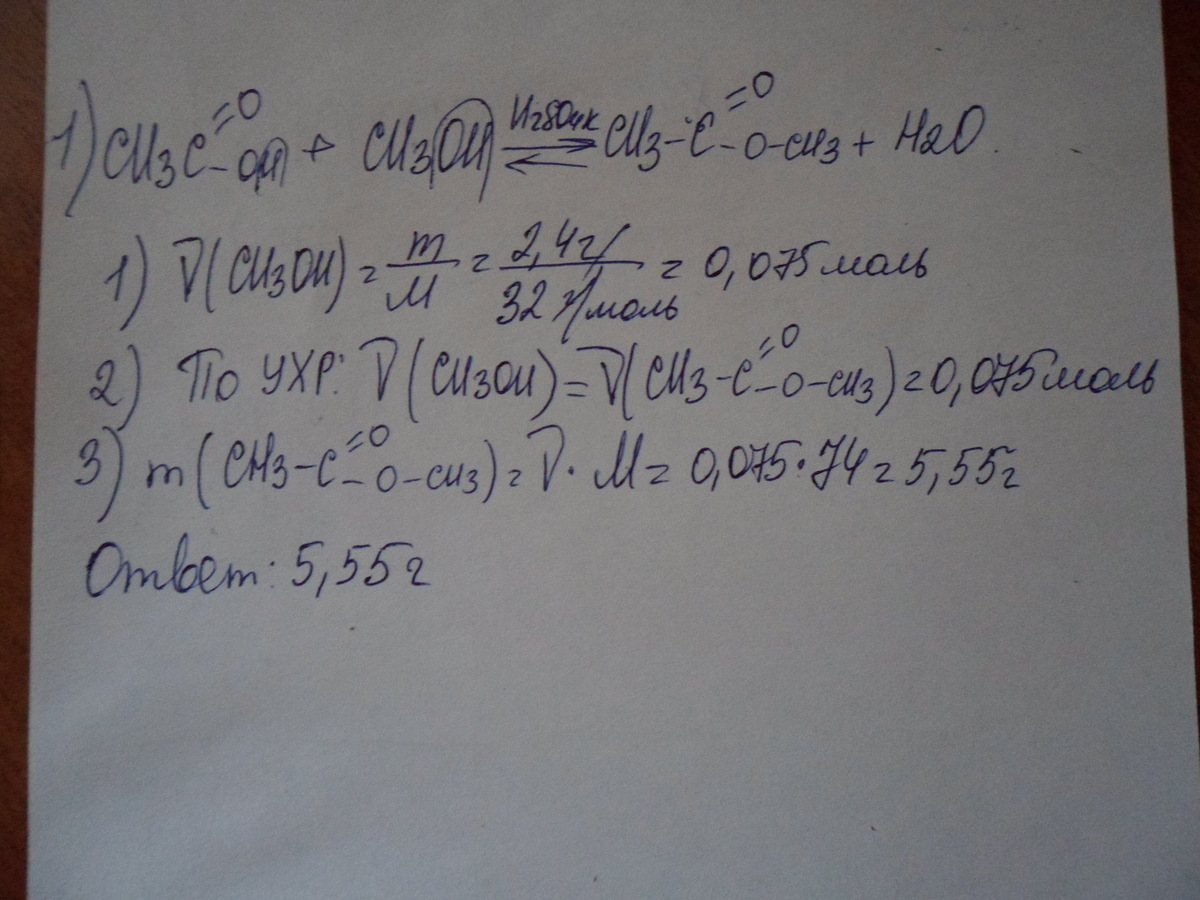 1) CH3C=O-OH + CH3OH ⇌ H2SO4к CH3-C=O-O-CH3 + H2O.
1) ν(CH3OH) = m/M = 2,4г/32 г/моль = 0,075 моль
2) По УХР: ν(CH3OH) = ν(CH3-C=O-O-CH3) = 0,075 моль
3) m(CH3-C=O-O-CH3) = ν·M = 0,075·74 = 5,55г
Ответ: 5,55г